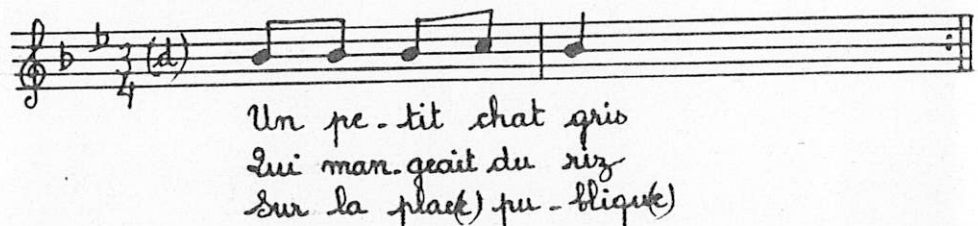 3
4
(d)
Un pe-tit chat gris
Qui man-geait du riz
Sur la plac(e) pu-bliqu(e)